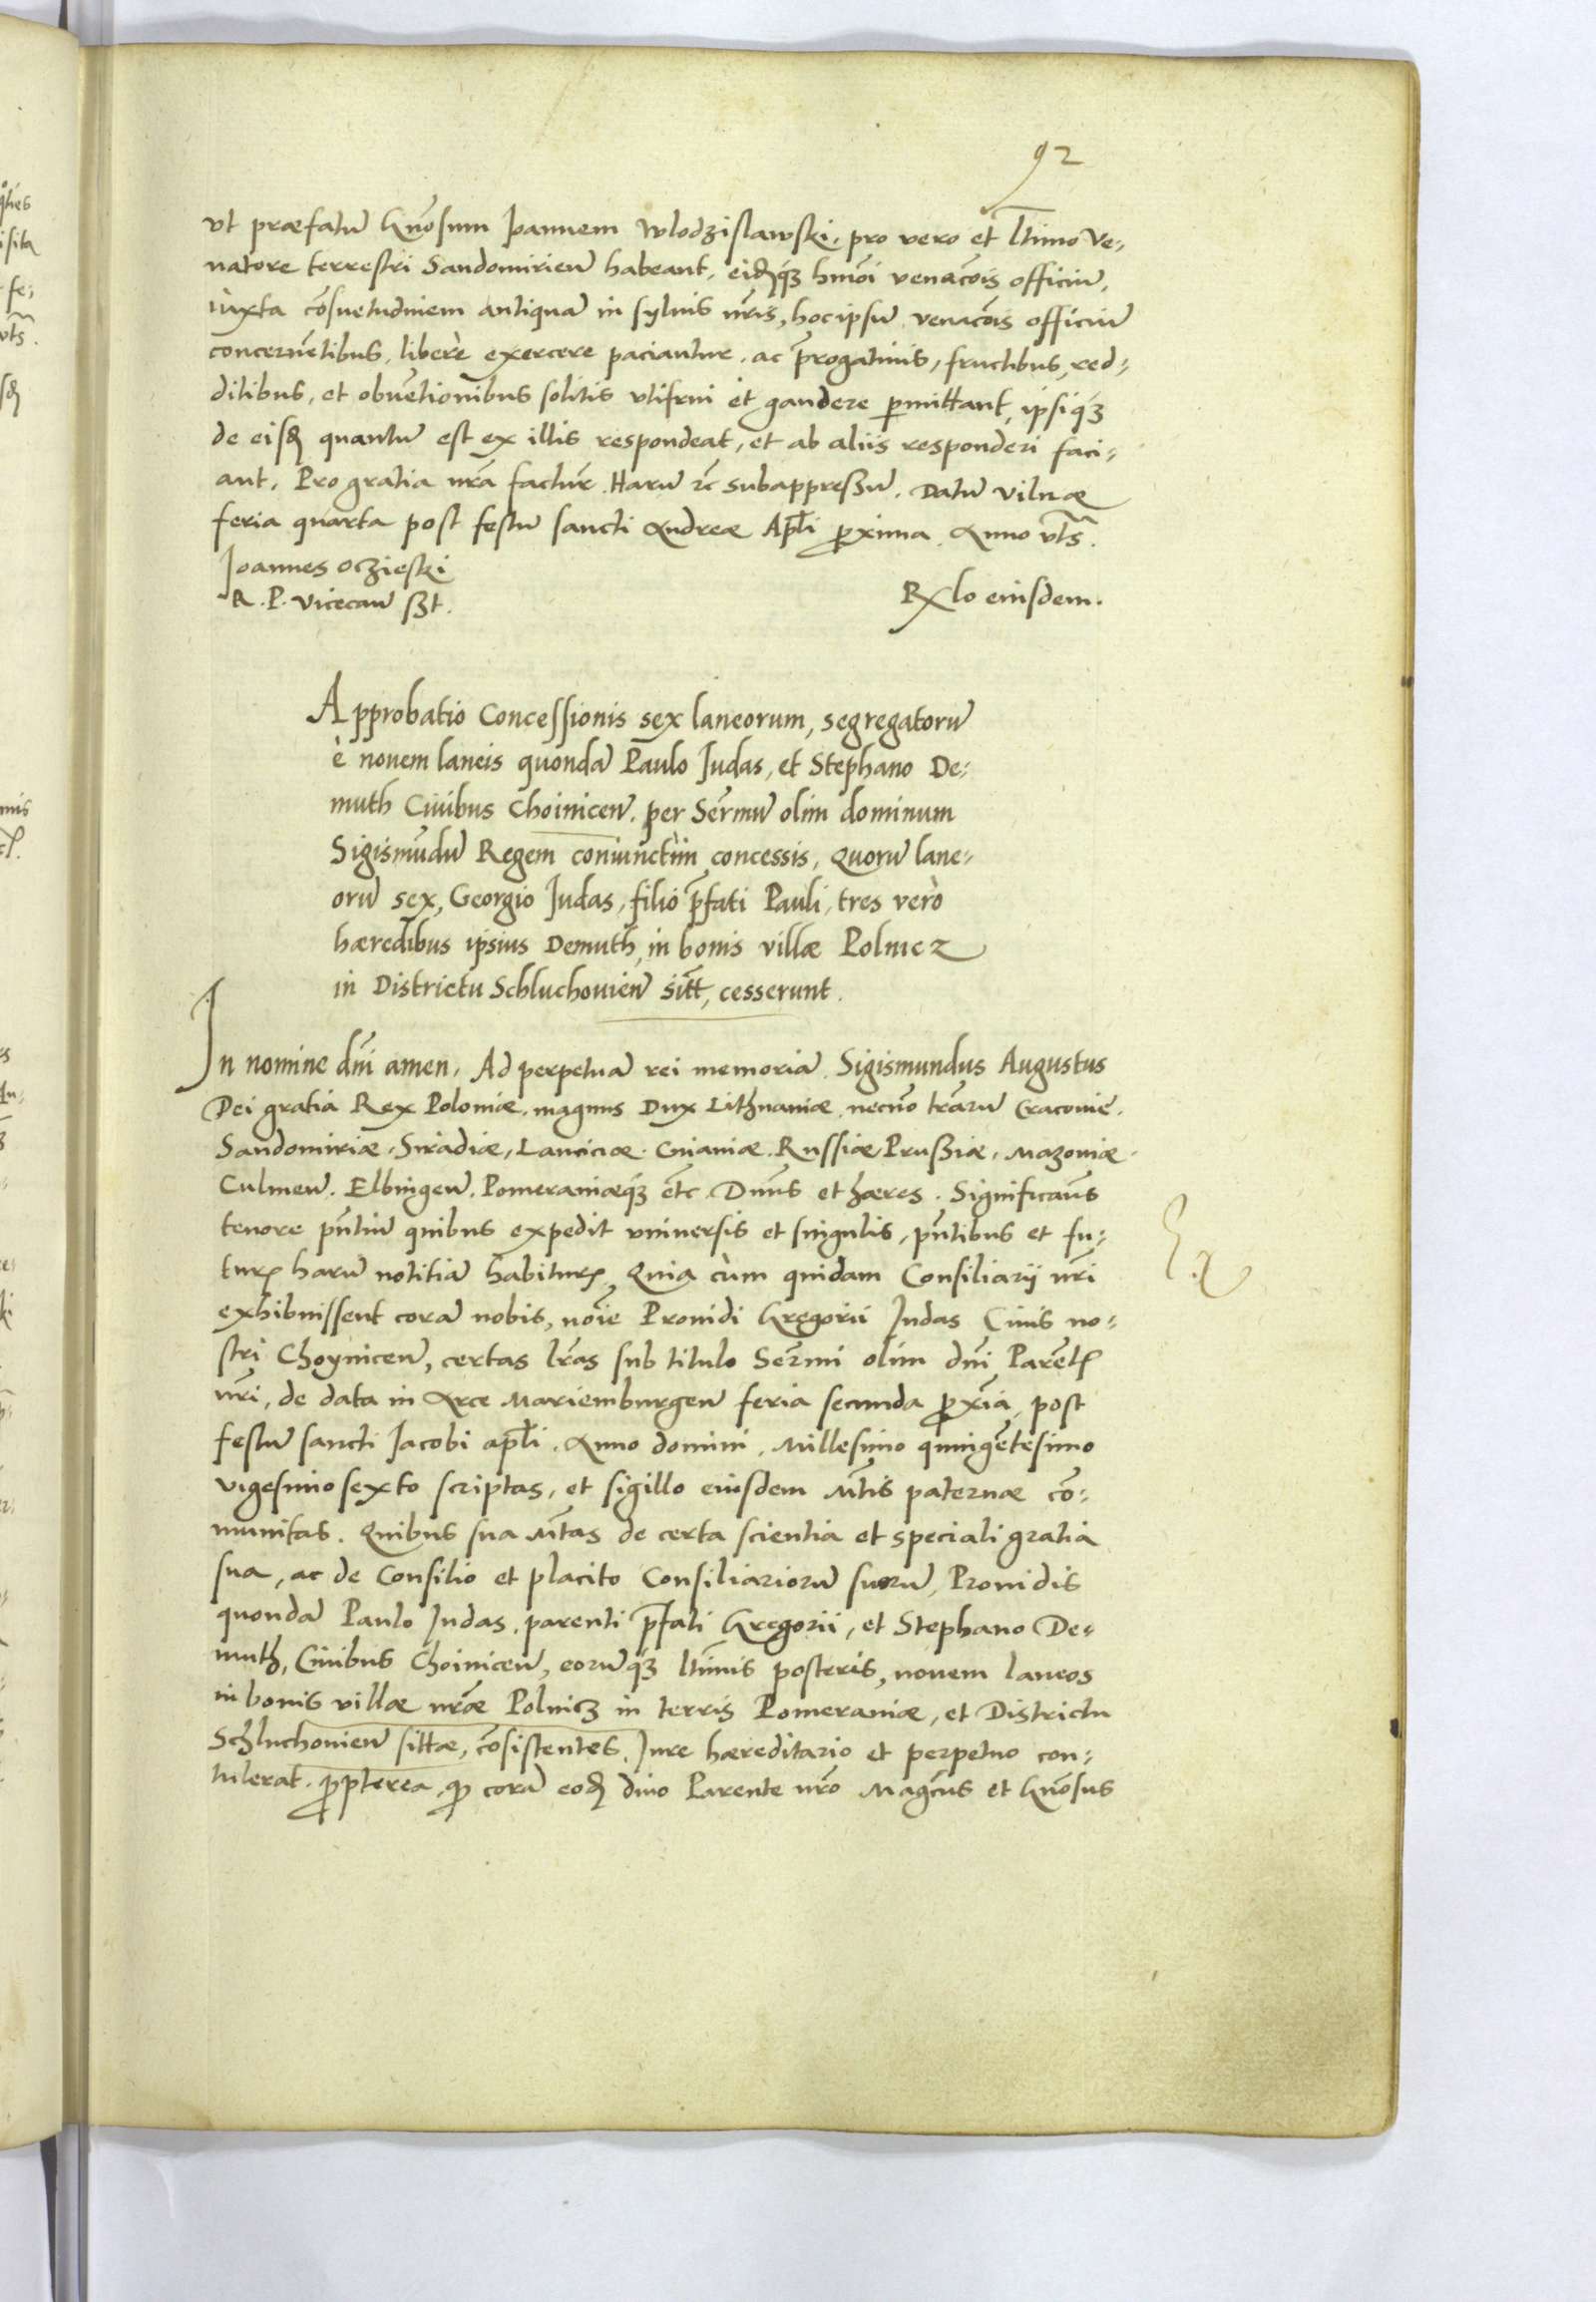 92
vt præfatū Gnōsum Joannem Wlodzislawski, pro vero et ltimo Ve-
natore terrestri Sandomirien̄ habeant, eidq́ʒ hmōi venacōis officiū,
iuxta cōsuetudinem antiquā in syluis nr̄is, hoc ipsū venacōis officiū
concernētibus, liberè exercere paciantur, ac p̄rogatiuis, fructibus, red-
ditibus, et obuētionibus solitis vtifrui et gaudere pmittant, ipsiq́ʒ
de eisd quantū est ex illis respondeat, et ab aliis responderi faci-
ant. Pro gratia nr̄a factur̄. Harū rc̄ subappressū. Datū Vilnæ
feria quarta post festū sancti Andreæ Apl̄i proxima. Anno vts̄.
Joannes Oczieski
R. P. Vicecan̄ sst.
Rxlo eiusdem.
Approbatio Concessionis sex laneorum, segregatorū
è nouem laneis quondā Paulo Judas, et Stephano De-
muth Ciuibus Choinicen̄. per Ser̄mū olim dominum
Sigismūdū Regem coniunctìm concessis, Quorū lane-
orū sex, Georgio Judas, filio p̄fati Pauli, tres verò
hæredibus ipsius Demuth, in bonis villæ Polnicz
in Districtu Schluchouien̄ sitt̄, cesserunt.
In nomine dn̄i amen. Ad perpetuā rei memoriā. Sigismundus Augustus
Dei gratia Rex Poloniæ, magnus Dux Lithuaniæ, necnō tr̄arū Cracouie.
Sandomiriæ, Siradiæ, Lanciciæ, Cuiauiæ, Russiæ, Prussiæ, Mazouiæ.
Culmen̄. Elbingen̄. Pomeraniæq́ʒ et̄c. Dn̄us et hæres. Significam̄s
tenore pn̄tiū quibus expedit vniuersis et singulis, pn̄tibus et fu-
turꝝ harū notitiā habiturꝝ. Quia cùm quidam Consiliarii nr̄i
exhibuissent corā nobis, noīe Prouidi Gregorii Judas Ciuis no-
stri Choynicen̄, certas lr̄as sub titulo Ser̄mi olim dn̄i Parētꝭ
nr̄i, de data in Arce Mariemburgen̄ feria secunda proxīa, post
festū sancti Jacobi apl̄i. Anno domini, Millesimo quingētesimo
vigesimosexto scriptas, et sigillo eiusdem Mt̄is paternæ cō-
munitas. Quibus sua Mt̄as de certa scientia et speciali gratia
sua, ac de Consilio et placito Consiliariorū suorū, Prouidis
quondā Paulo Judas, parenti p̄fati Gregorii, et Stephano De-
muth, Ciuibus Choinicen̄, eorūq́ʒ ltīmis posteris, nouem laneos
in bonis villæ nr̄æ Polnicz in terris Pomeraniæ, et Districtu
Schluchouien̄ sittæ, cōsistentes, Jure hæreditario et perpetuo con-
tulerat. propterea, qꝫ corā eod diuo Parente nr̄o Magc̄us et Gnōsus
Ex